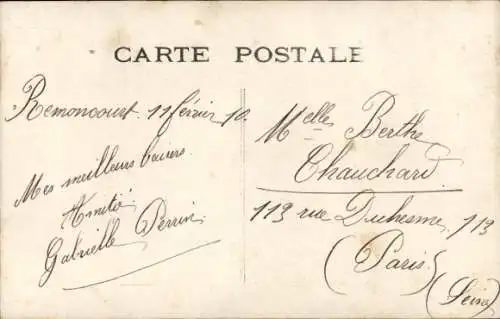 CARTE POSTALE
Remoncourt 11 février 10.
Mes meilleurs baisers.
Amitié
Gabrielle Perrin
Melle Berthe
Chauchard
113 rue Duhesme, 113
(Paris)
(Seine)